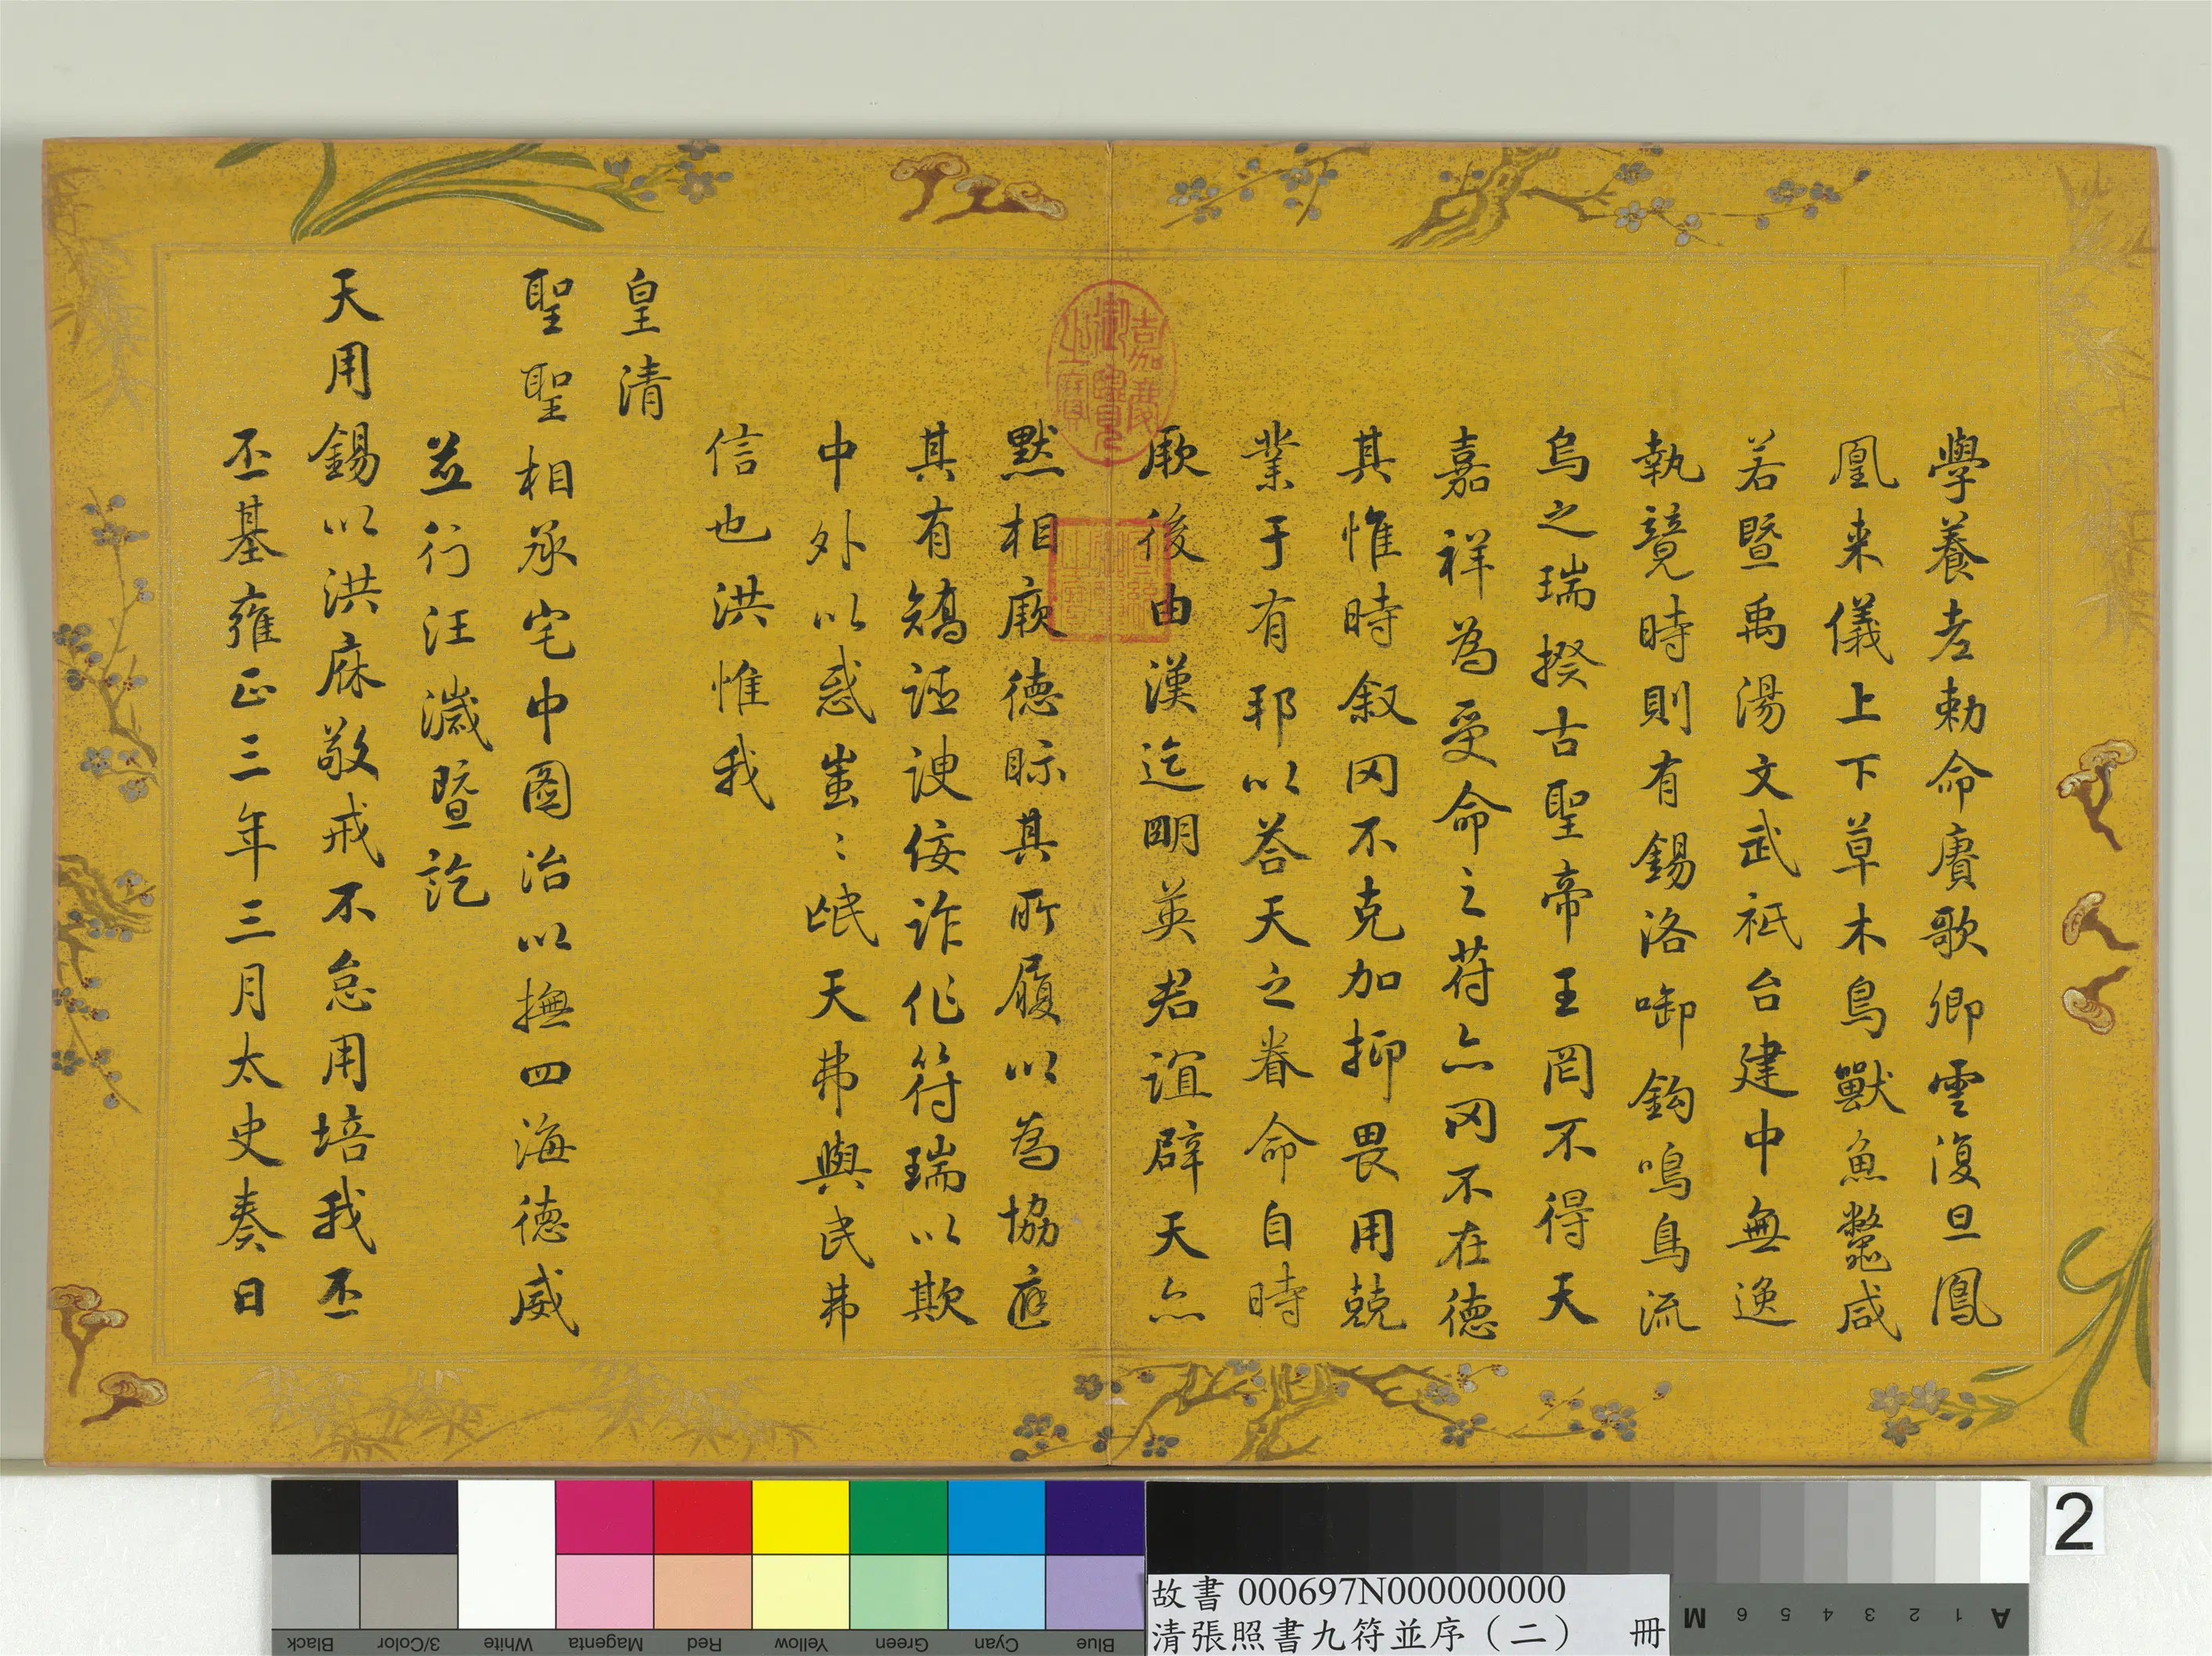 學養老勅命賡歌卿雲復旦鳳
凰来儀上下草木鳥獸魚鼈咸
若暨禹湯文武祇台建中無逸
執競時則有錫洛啣鈎鳴鳥流
烏之瑞揆古聖帝王罔不得天
嘉祥為受命之苻亦冈不在德
其惟時叙冈不克加抑畏用兢
業于有邦以荅天之眷命自時
厥後由漢迄明英君誼辟天亦
默相厥德眎其所履以為協應
其有矯誣諛佞詐作符瑞以欺
中外以惑蚩〻氓天弗與民弗
信也洪惟我
皇清
聖聖相承宅中圖治以撫四海德威
並行汪濊暨訖
天用錫以洪庥敬戒不怠用培我丕
丕基雍正三年三月太史奏日
嘉慶御覽之寶
故書 000697N000000000
清張照書九符並序（二） 冊
2
Black
3/Color
White
Magenta
Red
Yellow
Green
Cyan
Blue
A 1 2 3 4 5 6 M